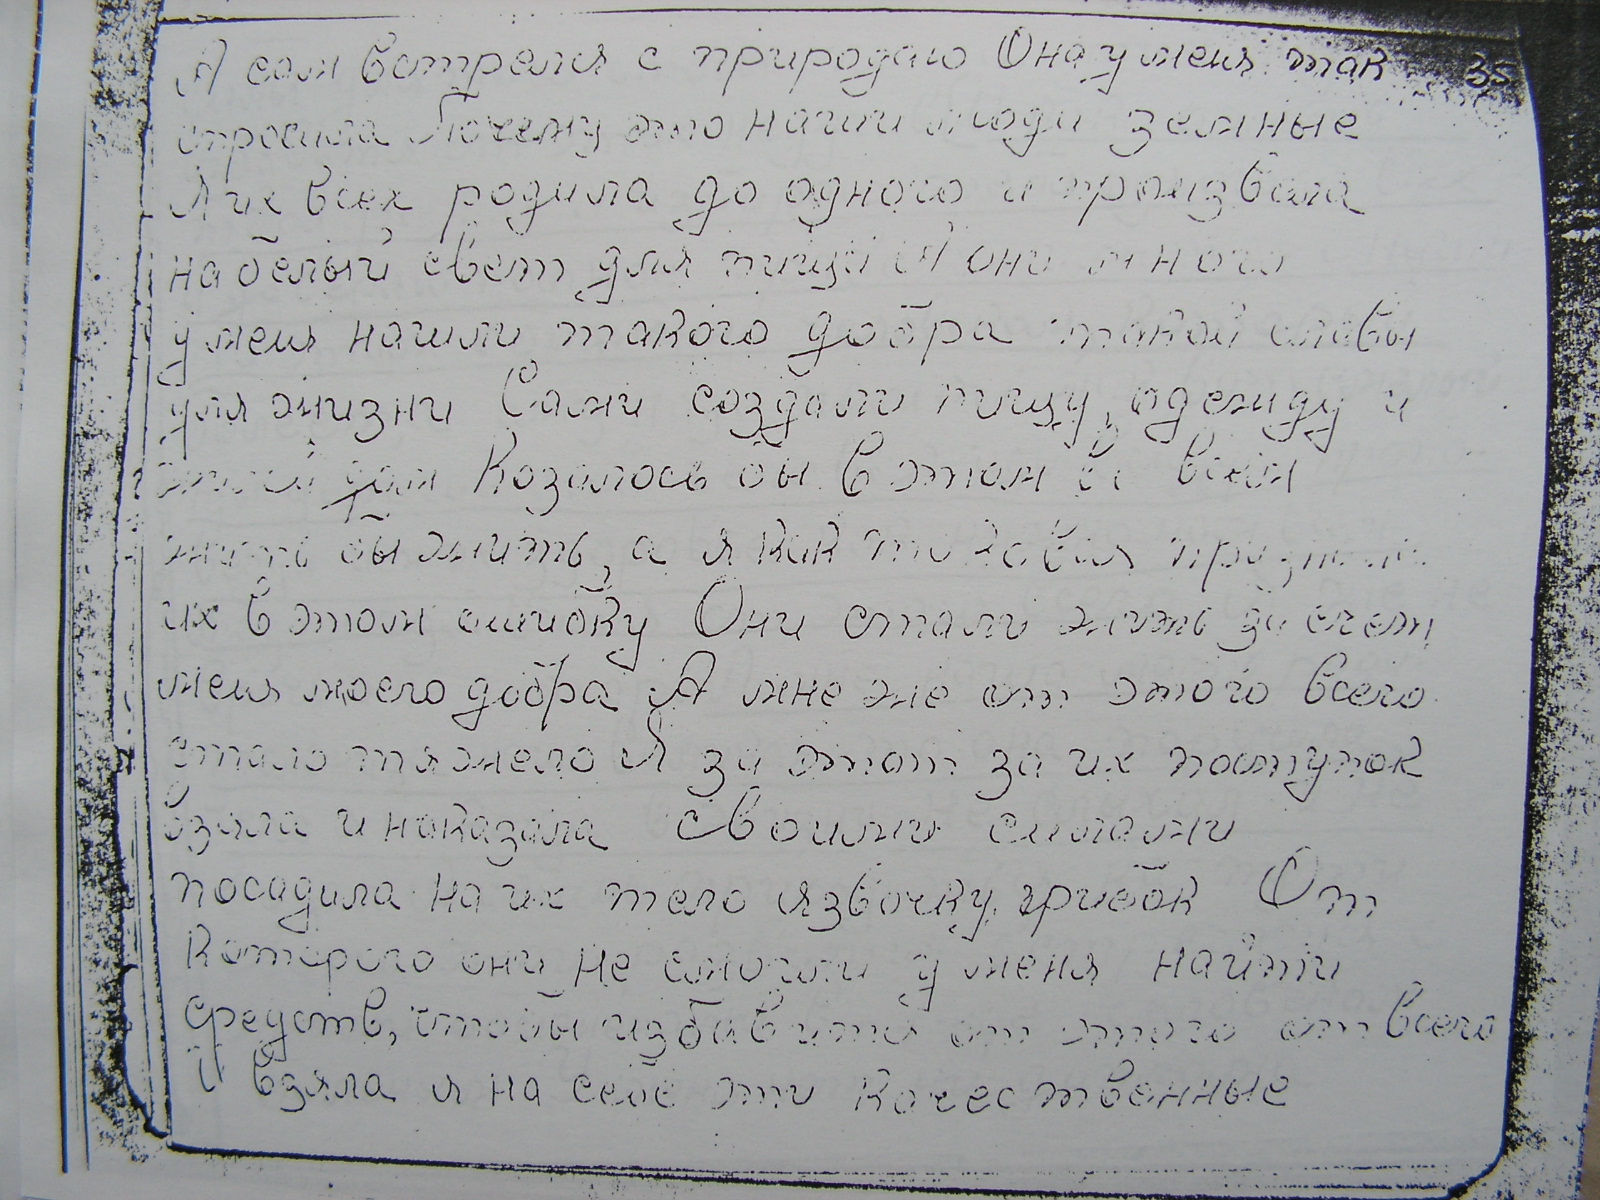 А сам встрелся с природаю Она у меня так 35
спросила Почему это наши люди земные
Я их всех родила до одного и произвела
на белый свет для пищи А они много
у меня нашли такого добра такой славы
для жизни Сами создали пищу, одежду и
жилой дом Козалось бы в этом и всем
жить бы жить, а я как таковая
их в этом ошибку Они стали жить за счет
меня моего добра А мне же от этого всего
стало тяжело Я за этот за их поступок
взяла и наказала своими силами
посадила на их тело язвочку, грибок От
которого они не смогли у меня найти
средств, чтобы избавится от этого от всего
И взяла я на себе эти качественные